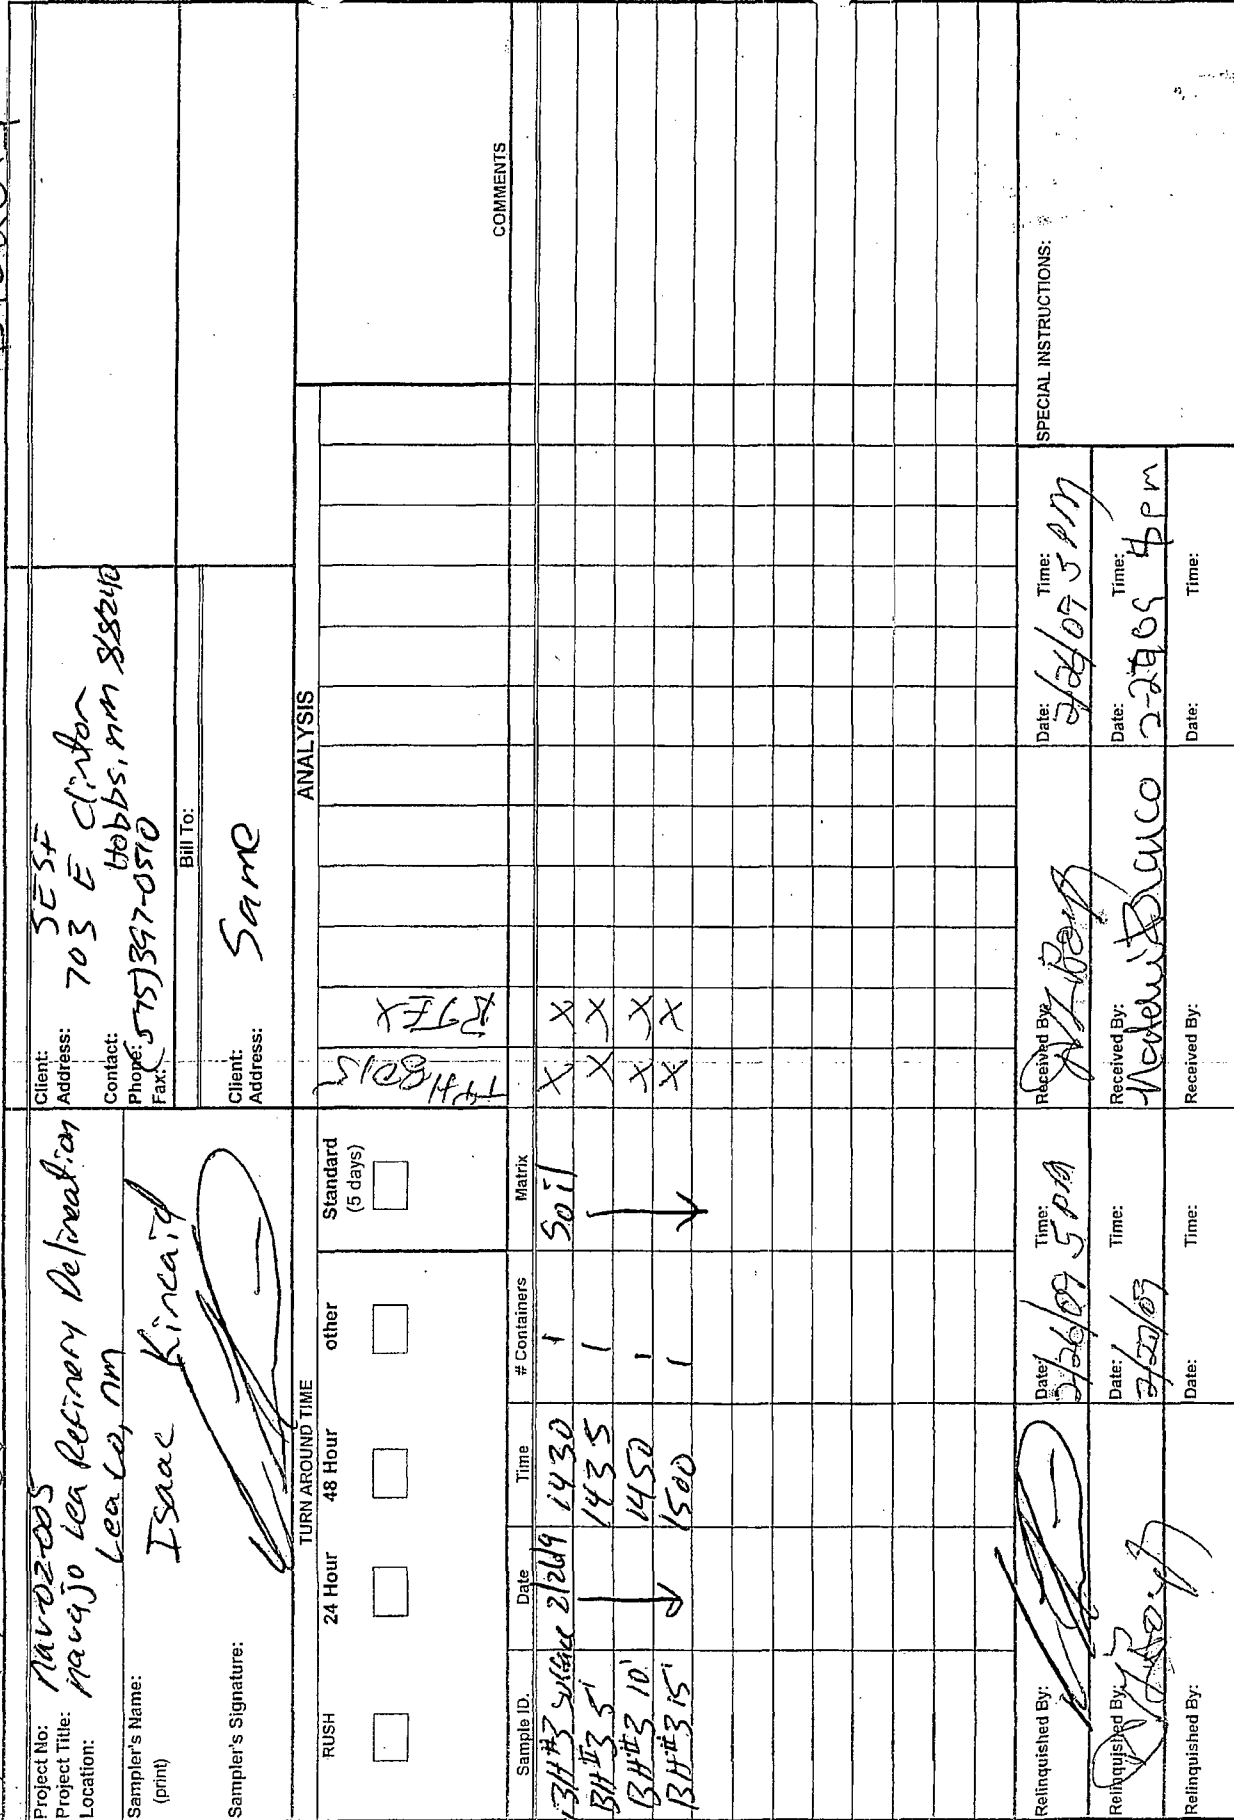 Project No: Nav-02-005
Project Title: Navajo Lea Refinery Delineation
Location: Lea Co, nm
Sampler's Name: Isaac Kincaid
(print)
Sampler's Signature:
Client: SESI
Address: 703 E Clinton
Contact: Hobbs, nm 88240
Phone: (575)397-0510
Fax:
Bill To:
Client: Same
Address:
TURN AROUND TIME
RUSH 24 Hour 48 Hour other Standard
(5 days)
ANALYSIS
TPH 8015
BTEX
COMMENTS
Sample ID. Date Time # Containers Matrix
BH#3 surface 2/26/9 1430 1 Soil X X
BH#3 5' 1435 1 X X
BH#3 10' 1450 1 X X
BH#3 15' 1500 1 X X
Relinquished By: Date: 2/26/09 Time: 5 PM
Received By: Date: 2/26/09 Time: 5 PM
Relinquished By: Date: 2/27/09 Time:
Received By: Date: Time: pm
Relinquished By: Date: Time:
Received By: Date: Time:
SPECIAL INSTRUCTIONS: